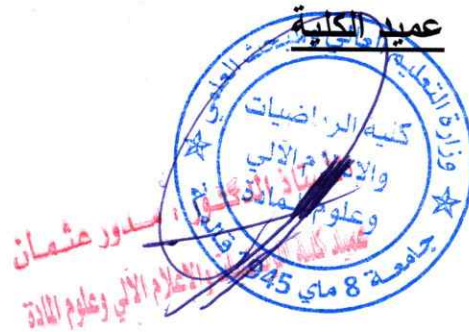 عميد الكلية
وزارة التعليم العالي والبحث العلمي
كلية الرياضيات
والإعلام الآلي
وعلوم المادة
جامعة 8 ماي 1945
الأستاذ الدكتور : مدور عثمان
عميد كلية الرياضيات والاعلام الآلي وعلوم المادة